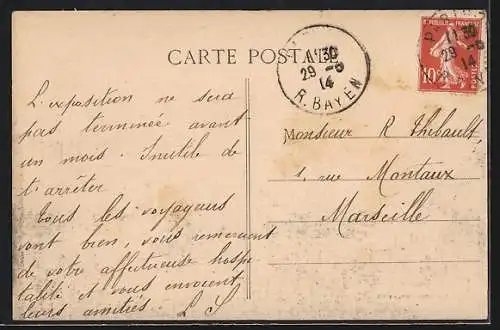 CARTE POSTALE
11 30
29 - 6
14
R. BAYEN
PARIS
11 30
29 - 6
14
BAYEN
REPUBLIQUE FRANCAISE
10c
POSTES
L'exposition ne sera
pas terminée avant
un mois. Inutile de
t'arrêter
Tous les voyageurs
vont bien, vous remercient
de votre affectueuse hospi
talité et vous envoient
leurs amitiés L S
Monsieur R Thibault,
1, rue Montaux
Marseille